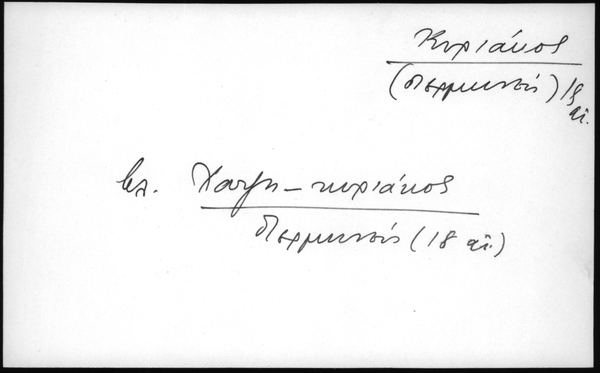 Κυριάκος
(διερμηνεύς) 18
αἰ.
βλ. Χατζη-κυριάκος
διερμηνεύς (18 αἰ.)